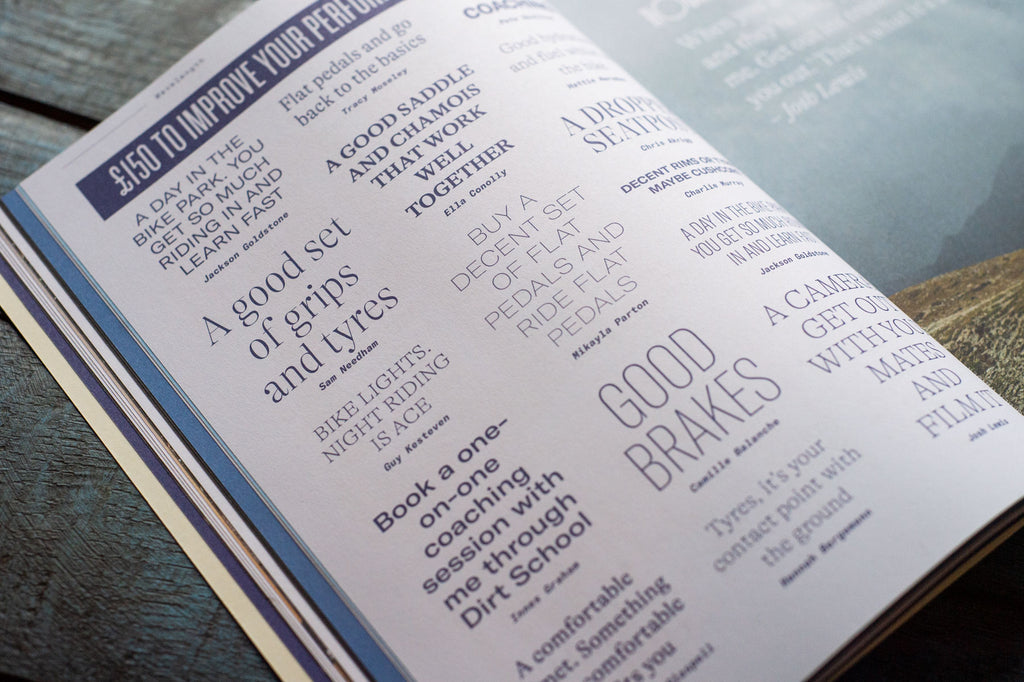 Wavelength
£150 TO IMPROVE YOUR
A DAY IN THE
BIKE PARK. YOU
GET SO MUCH
RIDING IN AND
LEARN FAST
Jackson Goldstone
A good set
of grips
and tyres
Sam Needham
BIKE LIGHTS.
NIGHT RIDING
IS ACE
Guy Kesteven
Book a one-
on-one
coaching
session with
me through
Dirt School
Innes Graham
A comfortable
Something
comfortable
you
Flat pedals and go
back to the basics
Tracy Moseley
A GOOD SADDLE
AND CHAMOIS
THAT WORK
WELL
TOGETHER
Ella Conolly
BUY A
DECENT SET
OF FLAT
PEDALS AND
RIDE FLAT
PEDALS
Mikayla Parton
GOOD
BRAKES
Camille Balanche
Tyres, it's your
contact point with
the ground
Hannah Bergemann
Good
and
the
A
Chris
DECENT RIMS OR
MAYBE
Charlie Murray
A DAY IN THE BIKE
YOU GET SO MUCH
IN AND LEARN
Jackson Goldstone
A
GET OUT
WITH YOUR
MATES
AND
FILM IT
Josh Lewis
When
and
me. Get
you out. That's what it's
Josh Lewis